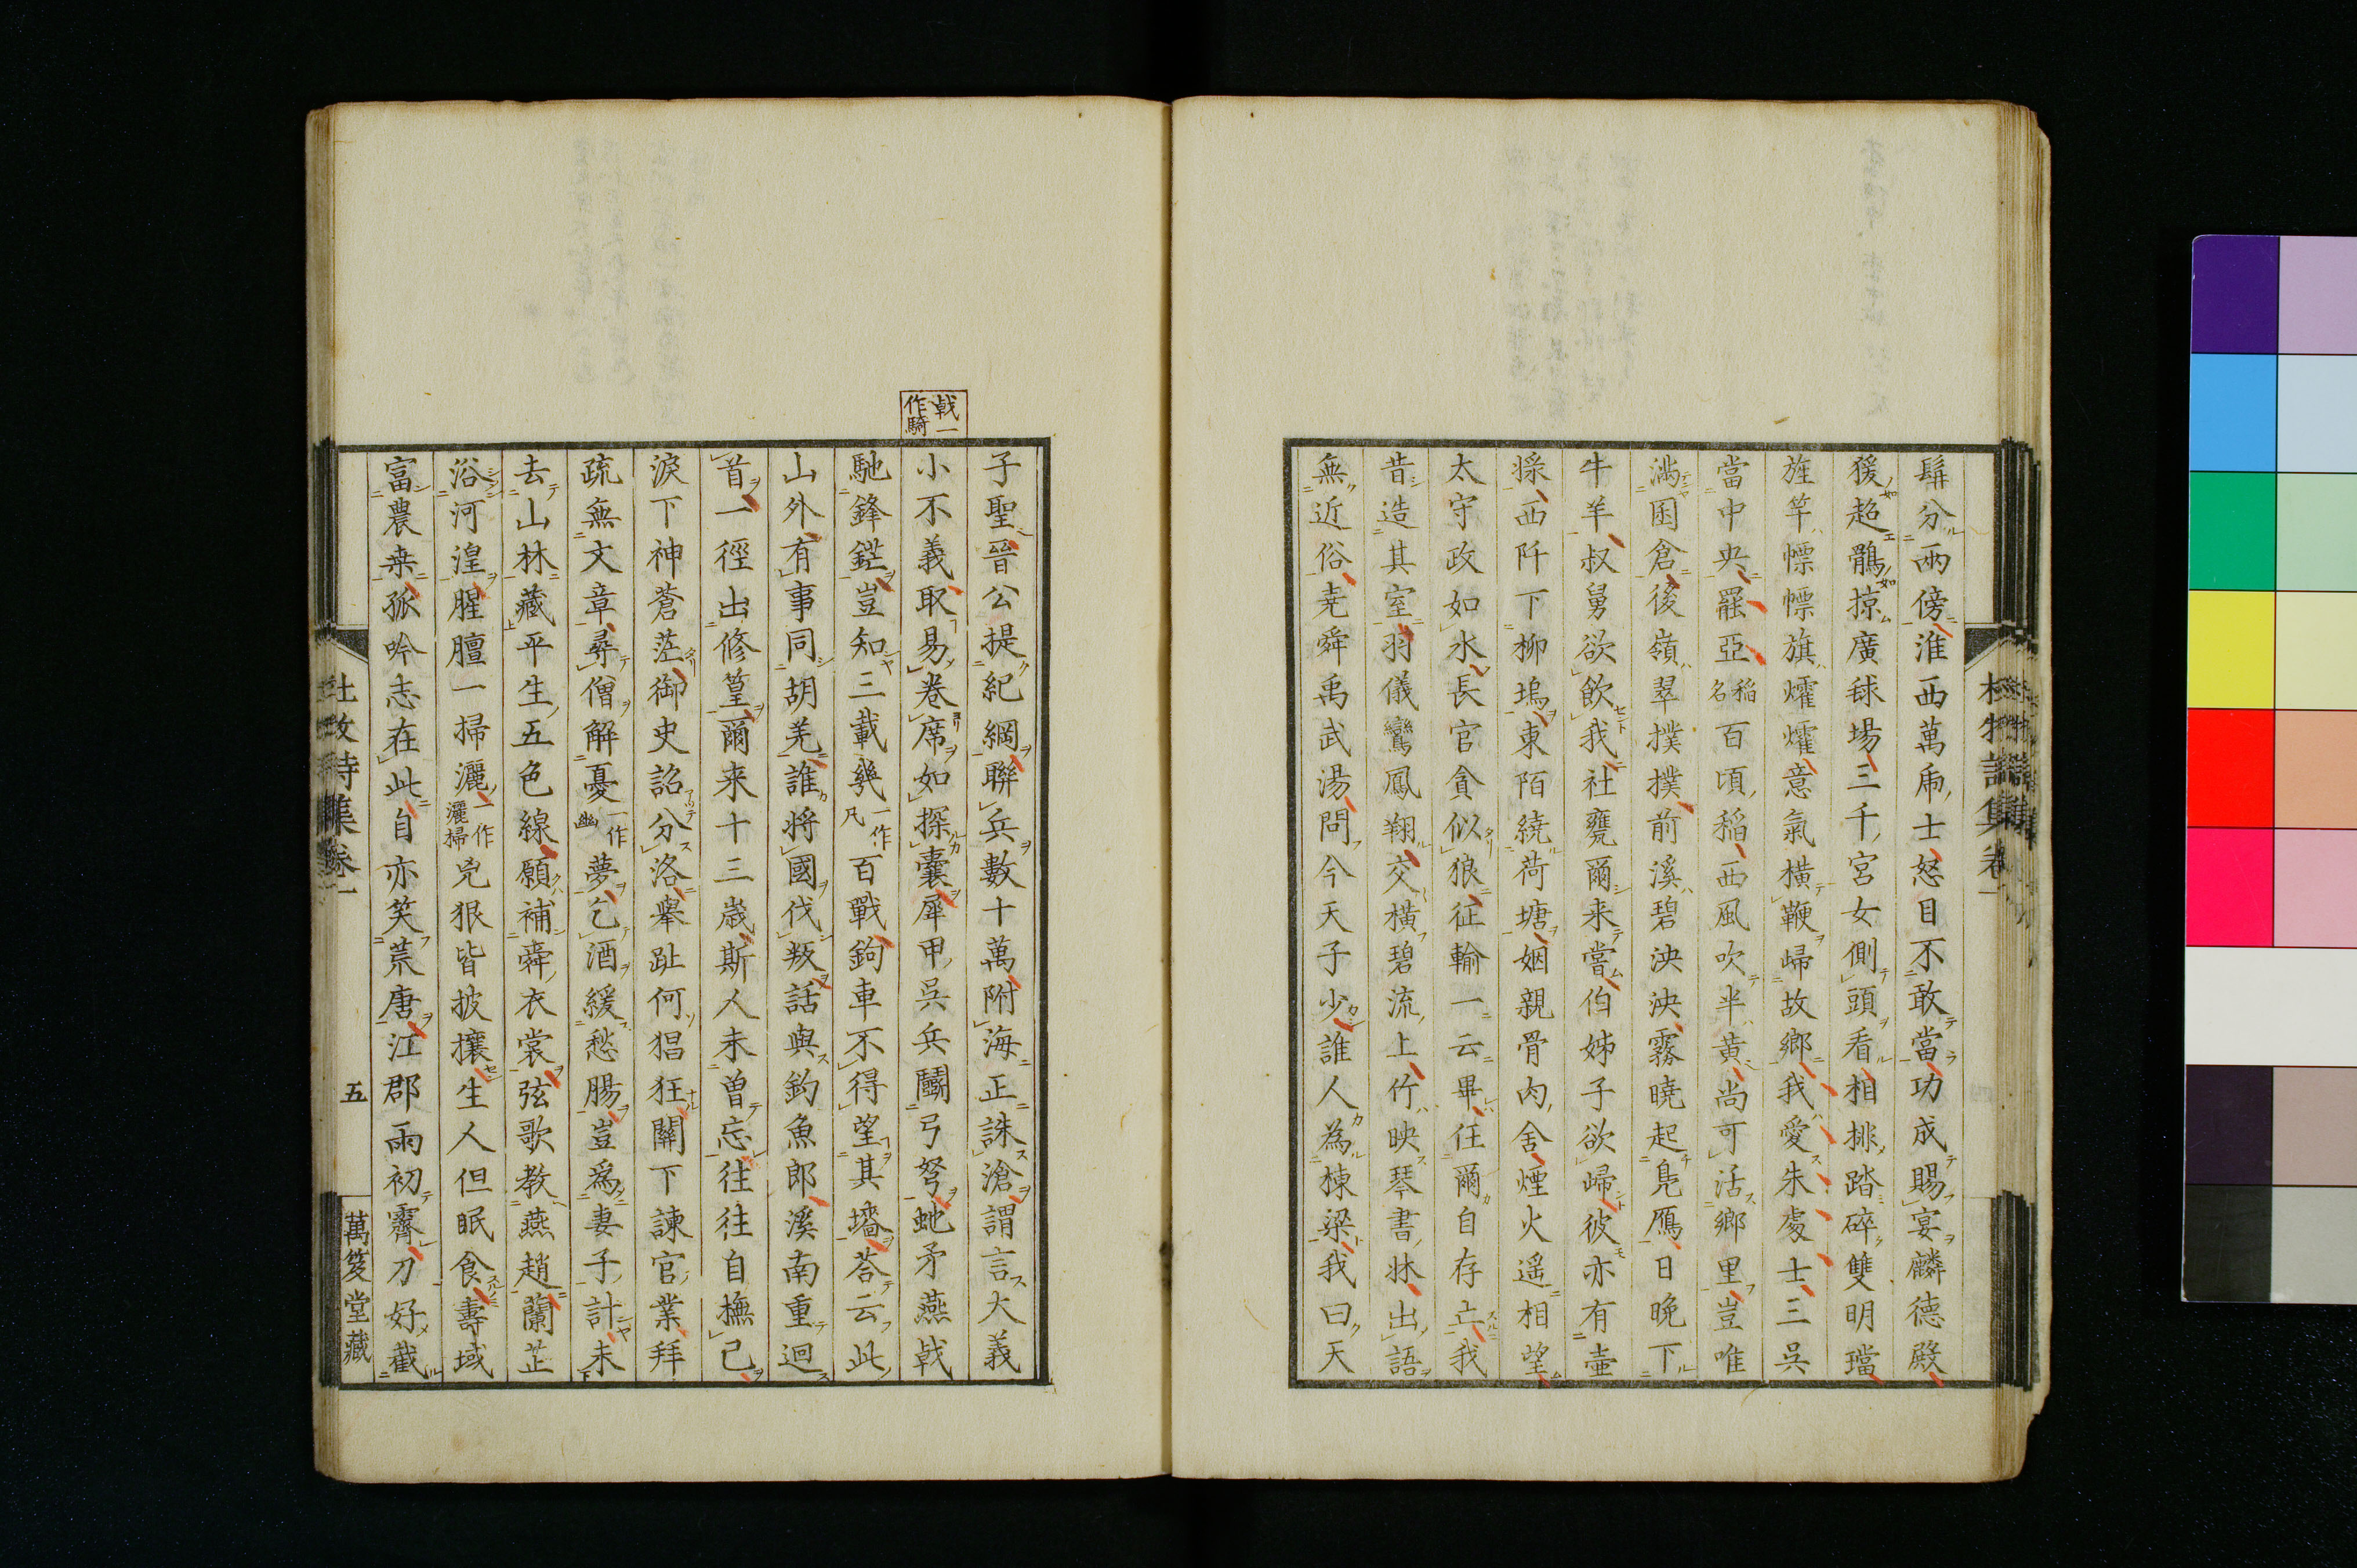 鬅分兩傍淮西萬虎士怒目不敢當功成賜宴麟德殿
猨超鶻掠廣毬場三千宮女側頭看相排踏碎雙明璫
旌竿幖幖旗㸌㸌意氣橫鞭歸故鄉我愛朱處士三吳
當中央罷亞稻名百頃稻西風吹半黃尚可活鄉里豈唯
滿囷倉後嶺翠撲撲前溪碧泱泱霧曉起鳧鴈日晚下
牛羊叔舅欲飲我社甕爾来嘗伯姊子欲歸彼亦有壺
漿西阡下柳塢東陌繞荷塘姻親骨肉舍煙火遥相望
太守政如水長官貪似狼征輸一云畢任爾自存亡我
昔造其室羽儀鸞鳳翔交橫碧流上竹映琴書牀出語
無近俗堯舜禹武湯問今天子少誰人為棟梁我曰天
杜牧詩集卷一
戟一作騎
子聖晉公提紀綱聯兵數十萬附海正誅滄謂言大義
小不義取易卷席如探囊犀甲吳兵鬭弓弩蛇矛燕戟
馳鋒鋩豈知三載幾一作凡百戰鉤車不得望其墻荅云此
山外有事同胡羌誰將國伐叛話與釣魚郎溪南重迴
首一徑出修篁爾来十三歲斯人未曾忘往往自撫已
淚下神蒼茫御史詔分洛舉趾何猖狂闕下諫官業拜
疏無文章尋僧解憂一作幽夢乞酒緩愁腸豈爲妻子計未
去山林藏平生五色線願補舜衣裳弦歌教燕趙蘭芷
浴河湟腥膻一掃灑一作灑掃兇狠皆披攘生人但眠食壽域
富農桒孤吟志在此自亦笑荒唐江郡雨初霽刀好截
杜牧詩集卷一
五
萬笈堂藏